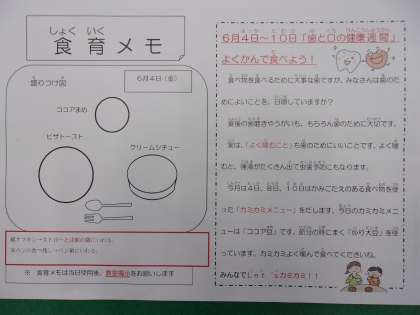 しょく いく
食育メモ
6月4日(金)
盛りつけ図
ココアまめ
ピザトースト
クリームシチュー
※ 食育メモは当日使用後、教室掲示をお願いします
6月4日～10日「歯と口の健康週間」
よくかんで食べよう！
食べ物を食べるために大事な歯ですが、みなさんは歯のた
めによいことを、日頃していますか？
食後の歯磨きやうがいも、もちろん歯のために大切です。
実は、「よく噛むこと」も歯のためにいいことです。よく噛
むと、唾液がたくさん出て虫歯予防にもなります。
今月は4日、8日、10日はかみごたえのある食べ物を使
った「カミカミメニュー」をだします。今日のカミカミメニ
ューは「ココア豆」です。節分の時にまく「炒り大豆」を使
っています。カミカミよく噛んで食べてくださいね。
みんなでLet'sカミカミ！！